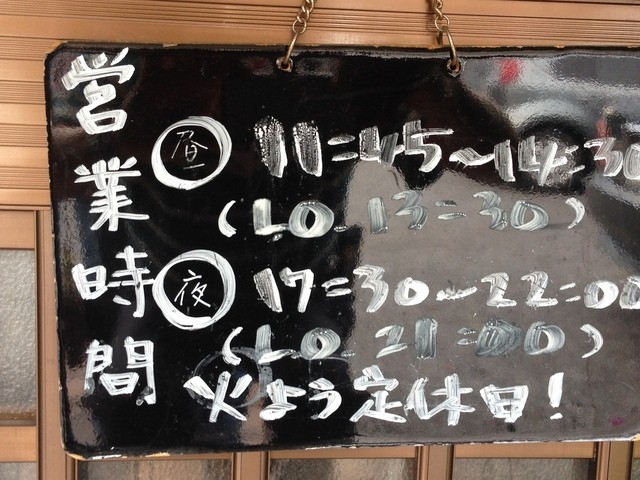 営業時間
昼 11:45～14:30
(L.O. 13:30)
夜 17:30～22:00
(L.O. 21:00)
火よう定休日!